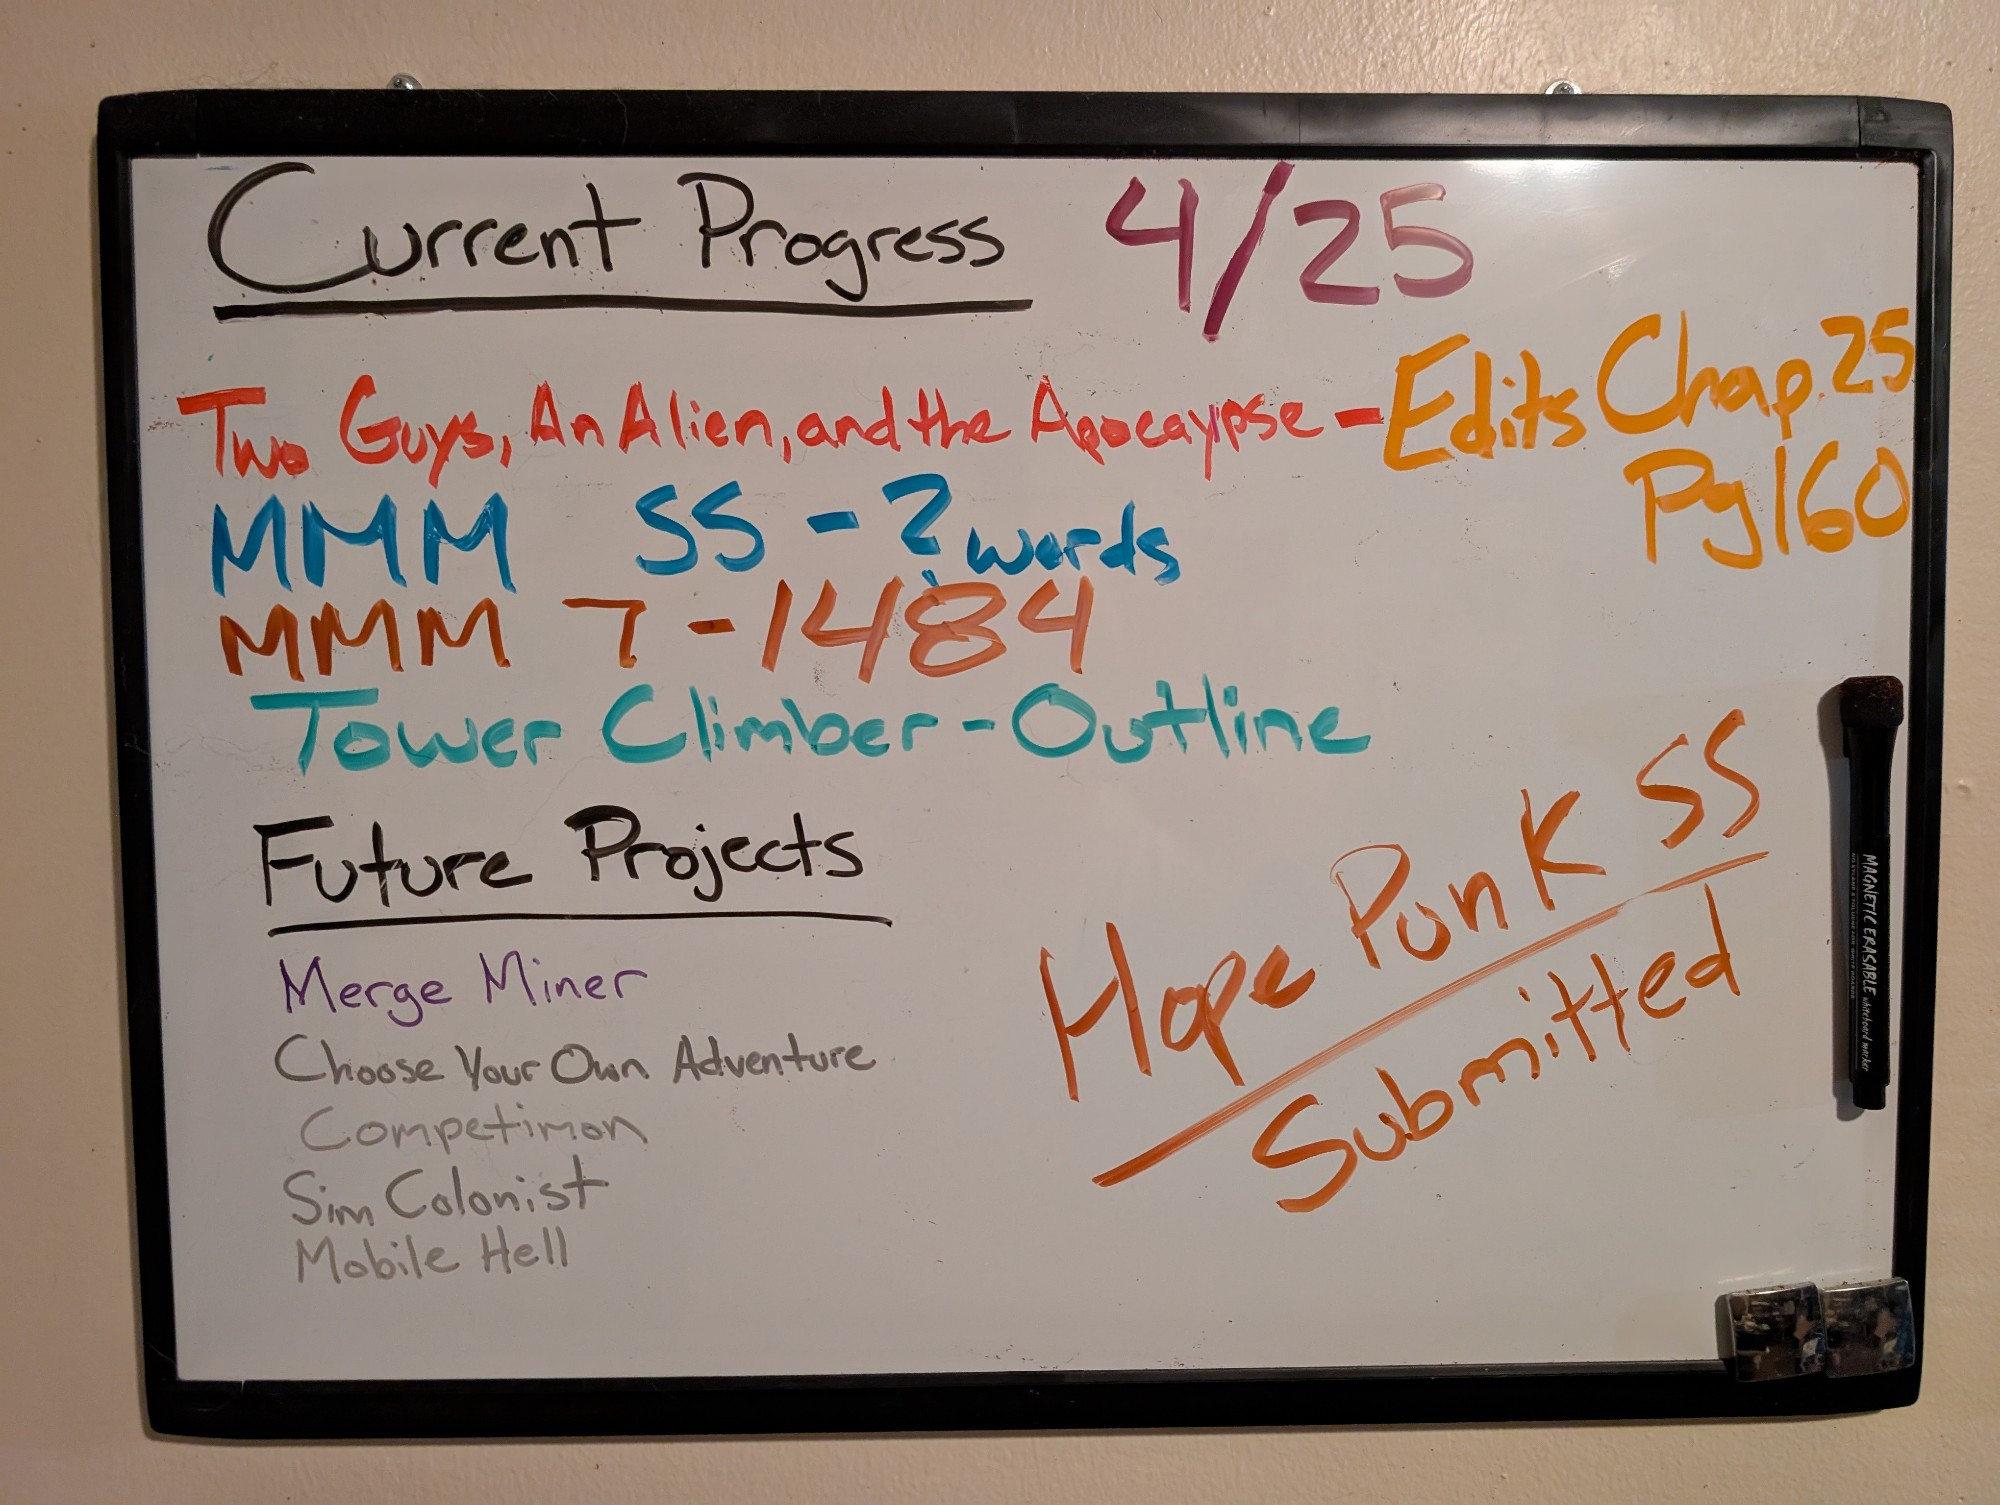 Current Progress 4/25
Two Guys, An Alien, and the Apocaylpse - Edits Chap. 25
Pg 160
MMM SS - ? words
MMM 7 - 1484
Tower Climber - Outline
Future Projects
Merge Miner
Choose Your Own Adventure
Competimon
Sim Colonist
Mobile Hell
Hope Punk SS
Submitted
MAGNETIC ERASABLE whiteboard marker